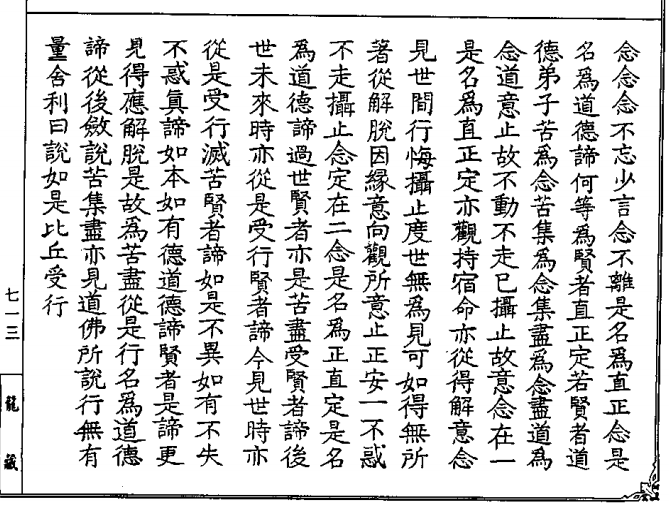 念念念不忘少言念不離是名爲直正念是
名爲道德諦何等爲賢者直正定若賢者道
德弟子苦爲念苦集爲念集盡爲念盡道爲
念道意止故不動不走已攝止故意念在一
是名爲直正定亦觀持宿命亦從得解意念
見世間行悔攝止度世無爲見可如得無所
著從解脫因緣意向觀所意止正安一不惑
不走攝止念定在二念是名爲正直定是名
爲道德諦過世賢者亦是苦盡受賢者諦後
世未來時亦從是受行賢者諦今見世時亦
從是受行滅苦賢者諦如是不異如有不失
不惑眞諦如本如有德道德諦賢者是諦更
見得應解脫是故爲苦盡從是行名爲道德
諦從後斂說苦集盡亦見道佛所說行無有
量舍利曰說如是比丘受行
七一三
龍藏